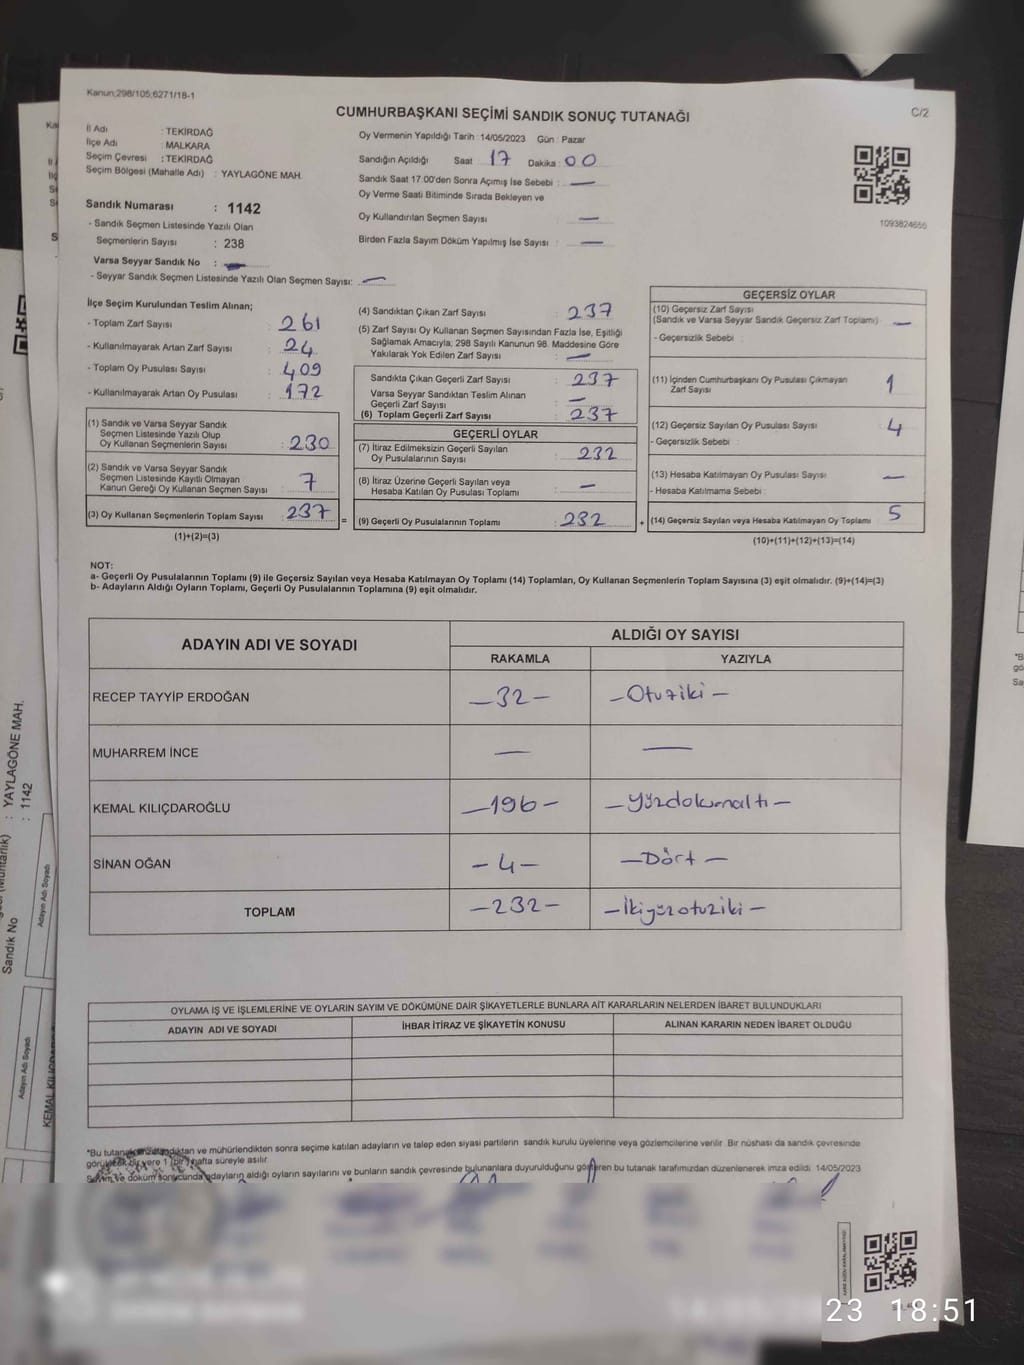 Kanun;298/105;6271/18-1
CUMHURBAŞKANI SEÇİMİ SANDIK SONUÇ TUTANAĞI
C/2
İl Adı : TEKİRDAĞ
İlçe Adı : MALKARA
Seçim Çevresi : TEKİRDAĞ
Seçim Bölgesi (Mahalle Adı) : YAYLAGÖNE MAH.
Sandık Numarası : 1142
- Sandık Seçmen Listesinde Yazılı Olan
Seçmenlerin Sayısı : 238
Varsa Seyyar Sandık No : —
- Seyyar Sandık Seçmen Listesinde Yazılı Olan Seçmen Sayısı: —
Oy Vermenin Yapıldığı Tarih : 14/05/2023 Gün : Pazar
Sandığın Açıldığı Saat : 17 Dakika : 00
Sandık Saat 17:00'den Sonra Açılmış İse Sebebi : —
Oy Verme Saati Bitiminde Sırada Bekleyen ve
Oy Kullandırılan Seçmen Sayısı : —
Birden Fazla Sayım Döküm Yapılmış İse Sayısı : —
1093824656
İlçe Seçim Kurulundan Teslim Alınan;
- Toplam Zarf Sayısı : 261
- Kullanılmayarak Artan Zarf Sayısı : 24
- Toplam Oy Pusulası Sayısı : 409
- Kullanılmayarak Artan Oy Pusulası : 172
(1) Sandık ve Varsa Seyyar Sandık
Seçmen Listesinde Yazılı Olup
Oy Kullanan Seçmenlerin Sayısı : 230
(2) Sandık ve Varsa Seyyar Sandık
Seçmen Listesinde Kayıtlı Olmayan
Kanun Gereği Oy Kullanan Seçmen Sayısı : 7
(3) Oy Kullanan Seçmenlerin Toplam Sayısı : 237
(1)+(2)=(3)
(4) Sandıktan Çıkan Zarf Sayısı : 237
(5) Zarf Sayısı Oy Kullanan Seçmen Sayısından Fazla İse, Eşitliği
Sağlamak Amacıyla; 298 Sayılı Kanunun 98. Maddesine Göre
Yakılarak Yok Edilen Zarf Sayısı : —
Sandıkta Çıkan Geçerli Zarf Sayısı : 237
Varsa Seyyar Sandıktan Teslim Alınan
Geçerli Zarf Sayısı : —
(6) Toplam Geçerli Zarf Sayısı : 237
GEÇERLİ OYLAR
(7) İtiraz Edilmeksizin Geçerli Sayılan
Oy Pusulalarının Sayısı : 232
(8) İtiraz Üzerine Geçerli Sayılan veya
Hesaba Katılan Oy Pusulası Toplamı : —
= (9) Geçerli Oy Pusulalarının Toplamı : 232 +
GEÇERSİZ OYLAR
(10) Geçersiz Zarf Sayısı
(Sandık ve Varsa Seyyar Sandık Geçersiz Zarf Toplamı) : —
- Geçersizlik Sebebi :
(11) İçinden Cumhurbaşkanı Oy Pusulası Çıkmayan
Zarf Sayısı : 1
(12) Geçersiz Sayılan Oy Pusulası Sayısı : 4
- Geçersizlik Sebebi :
(13) Hesaba Katılmayan Oy Pusulası Sayısı : —
- Hesaba Katılmama Sebebi :
(14) Geçersiz Sayılan veya Hesaba Katılmayan Oy Toplamı : 5
(10)+(11)+(12)+(13)=(14)
NOT:
a- Geçerli Oy Pusulalarının Toplamı (9) ile Geçersiz Sayılan veya Hesaba Katılmayan Oy Toplamı (14) Toplamları, Oy Kullanan Seçmenlerin Toplam Sayısına (3) eşit olmalıdır. (9)+(14)=(3)
b- Adayların Aldığı Oyların Toplamı, Geçerli Oy Pusulalarının Toplamına (9) eşit olmalıdır.
ADAYIN ADI VE SOYADI
ALDIĞI OY SAYISI
RAKAMLA YAZIYLA
RECEP TAYYİP ERDOĞAN —32— —Otuziki—
MUHARREM İNCE — —
KEMAL KILIÇDAROĞLU —196— —Yüzdoksanaltı—
SİNAN OĞAN —4— —Dört—
TOPLAM —232— —İkiyüzotuziki—
OYLAMA İŞ VE İŞLEMLERİNE VE OYLARIN SAYIM VE DÖKÜMÜNE DAİR ŞİKAYETLERLE BUNLARA AİT KARARLARIN NELERDEN İBARET BULUNDUKLARI
ADAYIN ADI VE SOYADI İHBAR İTİRAZ VE ŞİKAYETİN KONUSU ALINAN KARARIN NEDEN İBARET OLDUĞU
*Bu tutanak imzalandıktan ve mühürlendikten sonra seçime katılan adayların ve talep eden siyasi partilerin sandık kurulu üyelerine veya gözlemcilerine verilir. Bir nüshası da sandık çevresinde
görülecek bir yere 1 (bir) hafta süreyle asılır.
Sayım ve döküm sonucunda adayların aldığı oyların sayılarını ve bunların sandık çevresinde bulunanlara duyurulduğunu gösteren bu tutanak tarafımızdan düzenlenerek imza edildi. 14/05/2023
YAYLAGÖNE MAH.
: 1142
Sandık No
Adayın Adı Soyadı
Adayın Adı Soyadı
23 18:51